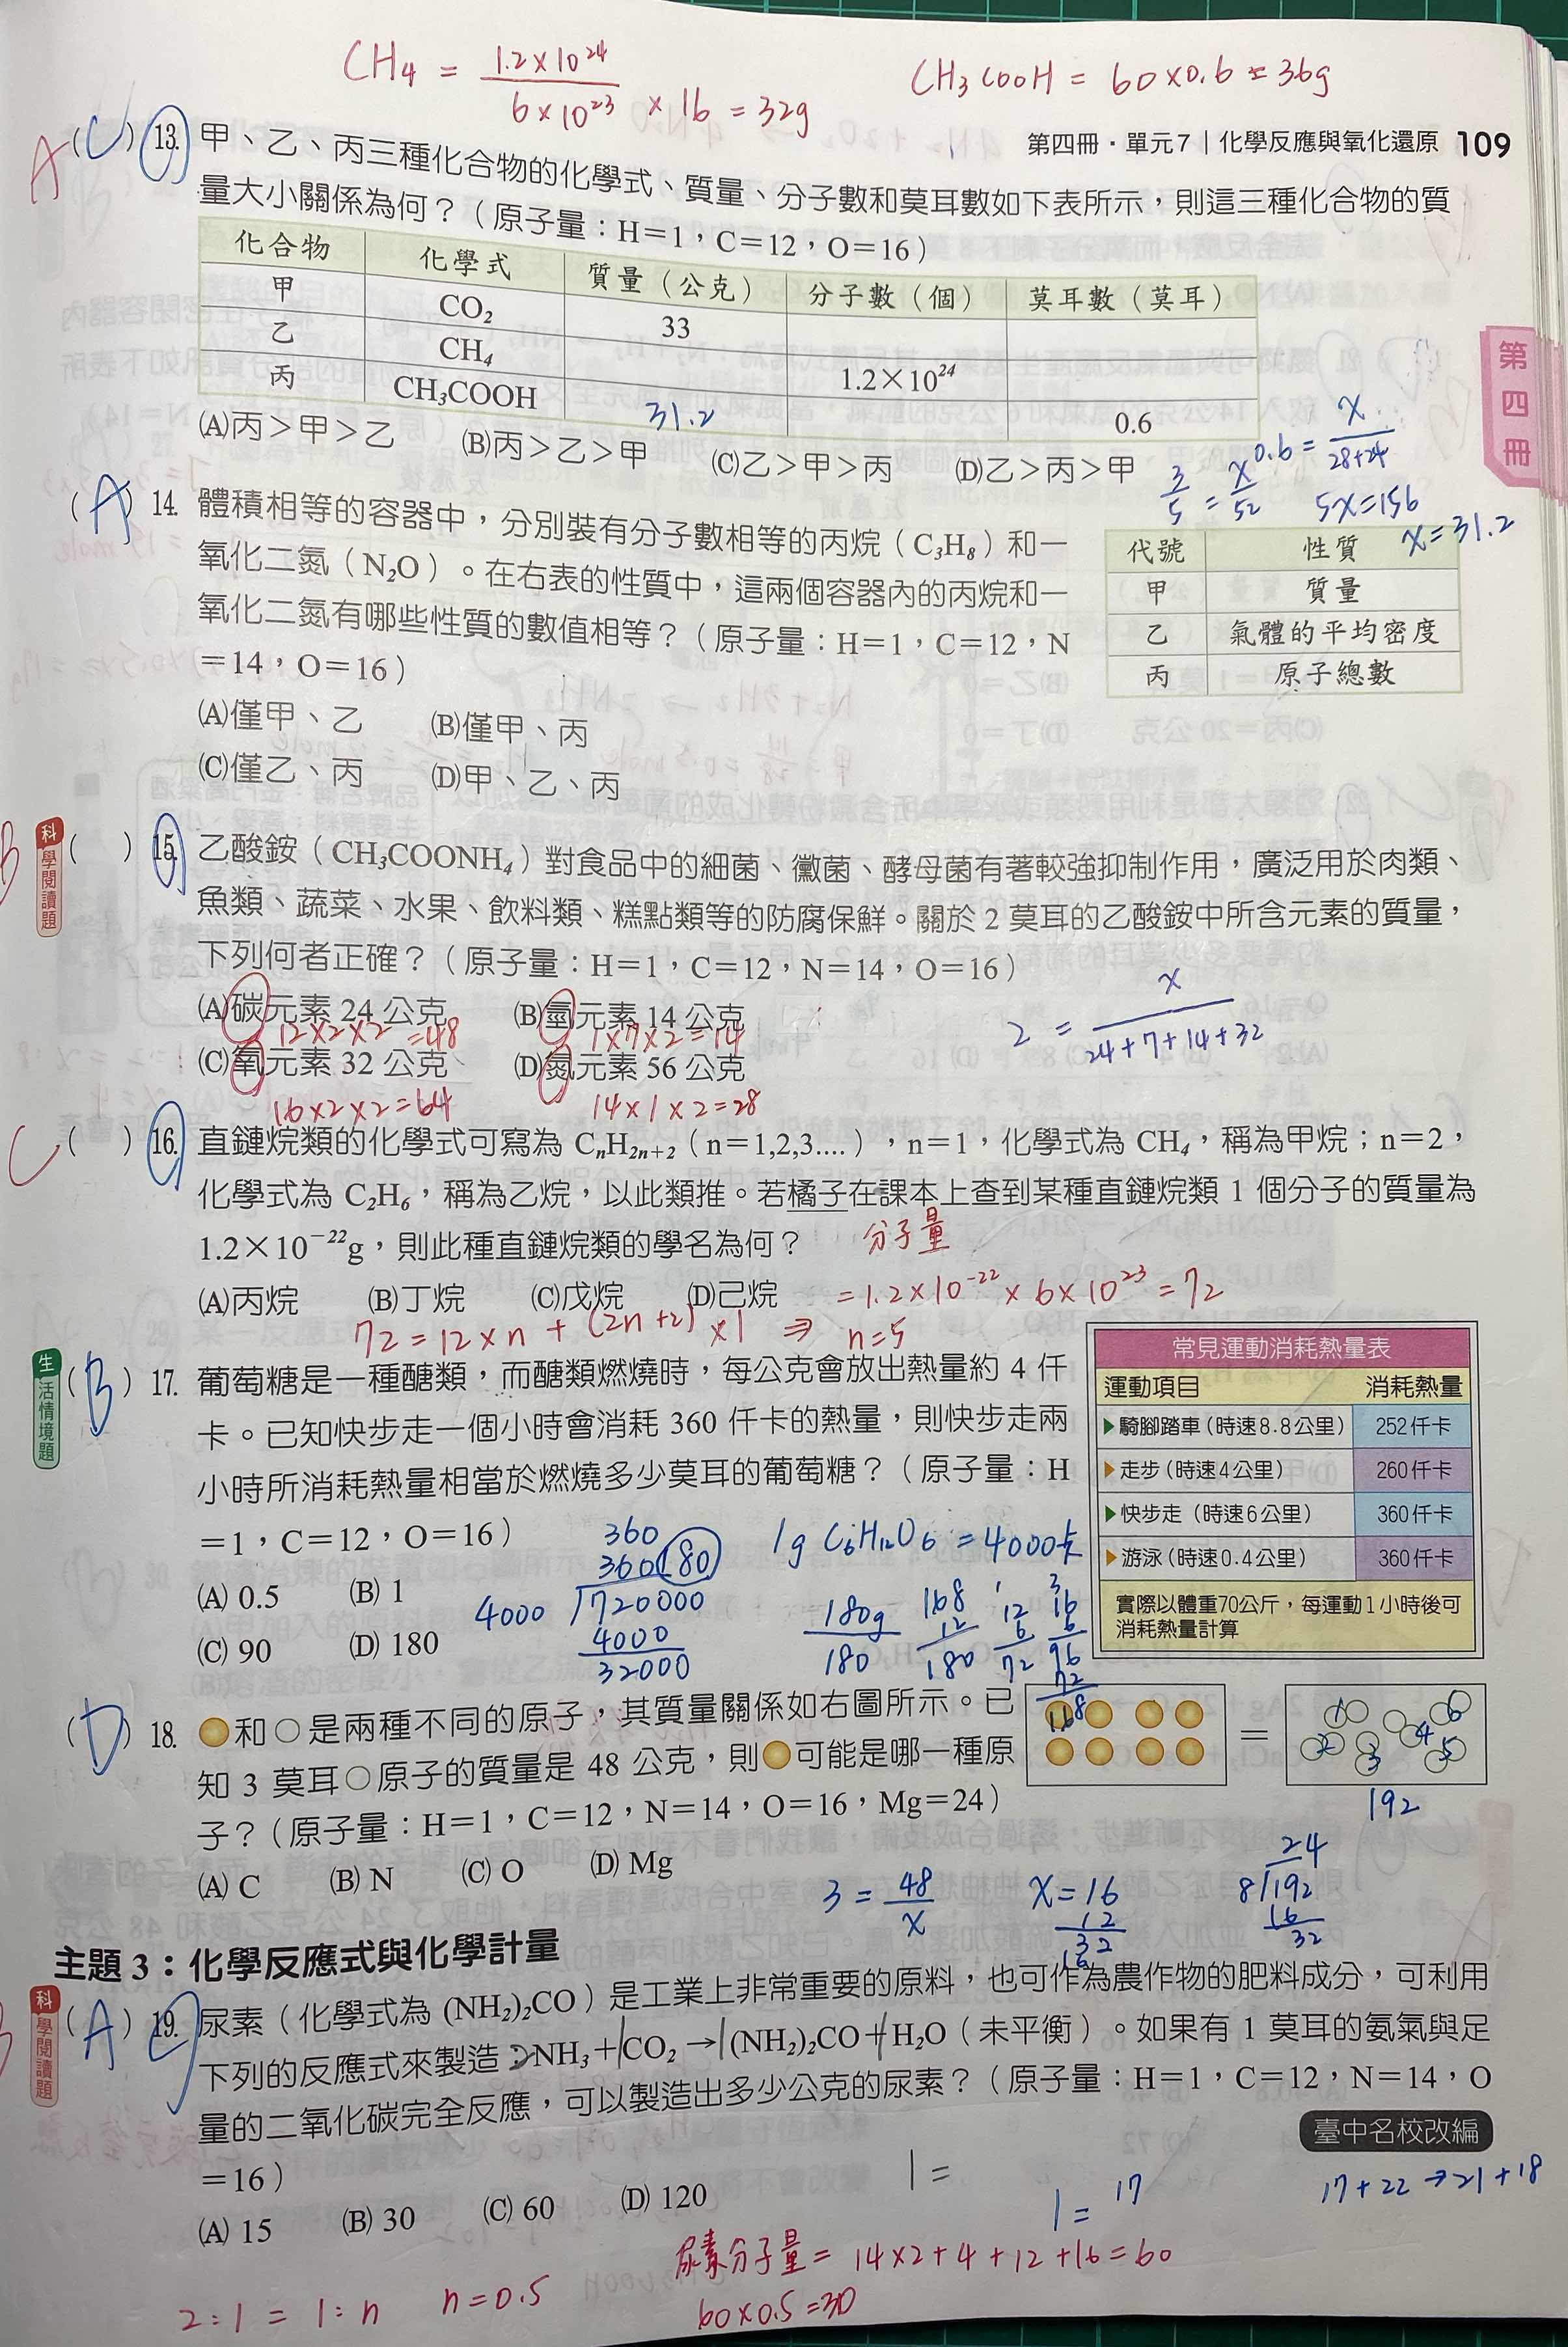 CH₄ = 1.2×10²⁴ / 6×10²³ × 16 = 32g
CH₃COOH = 60×0.6 = 36g
第四冊・單元7｜化學反應與氧化還原 109
A (C) 13. 甲、乙、丙三種化合物的化學式、質量、分子數和莫耳數如下表所示，則這三種化合物的質
量大小關係為何？（原子量：H＝1，C＝12，O＝16）
化合物 化學式 質量（公克） 分子數（個） 莫耳數（莫耳）
甲 CO₂ 33
乙 CH₄ 1.2×10²⁴
丙 CH₃COOH 31.2 0.6
(A)丙＞甲＞乙 (B)丙＞乙＞甲 (C)乙＞甲＞丙 (D)乙＞丙＞甲
0.6 = x / 28+24
3/5 = x/52 5x=156
x=31.2
第四冊
(A) 14. 體積相等的容器中，分別裝有分子數相等的丙烷（C₃H₈）和一
氧化二氮（N₂O）。在右表的性質中，這兩個容器內的丙烷和一
氧化二氮有哪些性質的數值相等？（原子量：H＝1，C＝12，N
＝14，O＝16）
(A)僅甲、乙 (B)僅甲、丙
(C)僅乙、丙 (D)甲、乙、丙
代號 性質
甲 質量
乙 氣體的平均密度
丙 原子總數
科學閱讀題
B ( ) 15. 乙酸銨（CH₃COONH₄）對食品中的細菌、黴菌、酵母菌有著較強抑制作用，廣泛用於肉類、
魚類、蔬菜、水果、飲料類、糕點類等的防腐保鮮。關於 2 莫耳的乙酸銨中所含元素的質量，
下列何者正確？（原子量：H＝1，C＝12，N＝14，O＝16）
(A)碳元素 24 公克 (B)氫元素 14 公克
12×2×2=48 1×7×2=14
(C)氧元素 32 公克 (D)氮元素 56 公克
16×2×2=64 14×1×2=28
2 = x / 24+7+14+32
C ( ) 16. 直鏈烷類的化學式可寫為 CₙH₂ₙ₊₂（n＝1,2,3....），n＝1，化學式為 CH₄，稱為甲烷；n＝2，
化學式為 C₂H₆，稱為乙烷，以此類推。若橘子在課本上查到某種直鏈烷類 1 個分子的質量為
1.2×10⁻²²g，則此種直鏈烷類的學名為何？ 分子量
(A)丙烷 (B)丁烷 (C)戊烷 (D)己烷 = 1.2×10⁻²²×6×10²³=72
72=12×n+(2n+2)×1 ⇒ n=5
生活情境題
(B) 17. 葡萄糖是一種醣類，而醣類燃燒時，每公克會放出熱量約 4 仟
卡。已知快步走一個小時會消耗 360 仟卡的熱量，則快步走兩
小時所消耗熱量相當於燃燒多少莫耳的葡萄糖？（原子量：H
＝1，C＝12，O＝16）
(A) 0.5 (B) 1
(C) 90 (D) 180
常見運動消耗熱量表
運動項目 消耗熱量
騎腳踏車（時速8.8公里） 252仟卡
走步（時速4公里） 260仟卡
快步走（時速6公里） 360仟卡
游泳（時速0.4公里） 360仟卡
實際以體重70公斤，每運動1小時後可
消耗熱量計算
360
360 180
4000 720000
4000
32000
1g C₆H₁₂O₆ = 4000卡
180g / 180
168 12 180
12 6 72
3 16 6 96
72
168
(D) 18. 和○是兩種不同的原子，其質量關係如右圖所示。已
知 3 莫耳○原子的質量是 48 公克，則可能是哪一種原
子？（原子量：H＝1，C＝12，N＝14，O＝16，Mg＝24）
(A) C (B) N (C) O (D) Mg
=
1 2 3 4 5 6
192
3 = 48/x
x=16
12
32
16
24
8 192
16
32
主題 3：化學反應式與化學計量
科學閱讀題
B (A) 19. 尿素（化學式為 (NH₂)₂CO）是工業上非常重要的原料，也可作為農作物的肥料成分，可利用
下列的反應式來製造：2NH₃＋1CO₂→1(NH₂)₂CO＋1H₂O（未平衡）。如果有 1 莫耳的氨氣與足
量的二氧化碳完全反應，可以製造出多少公克的尿素？（原子量：H＝1，C＝12，N＝14，O
＝16）
臺中名校改編
(A) 15 (B) 30 (C) 60 (D) 120
1 =
1 = 17
17+22→21+18
尿素分子量= 14×2+4+12+16=60
2:1 = 1:n n=0.5
60×0.5=30